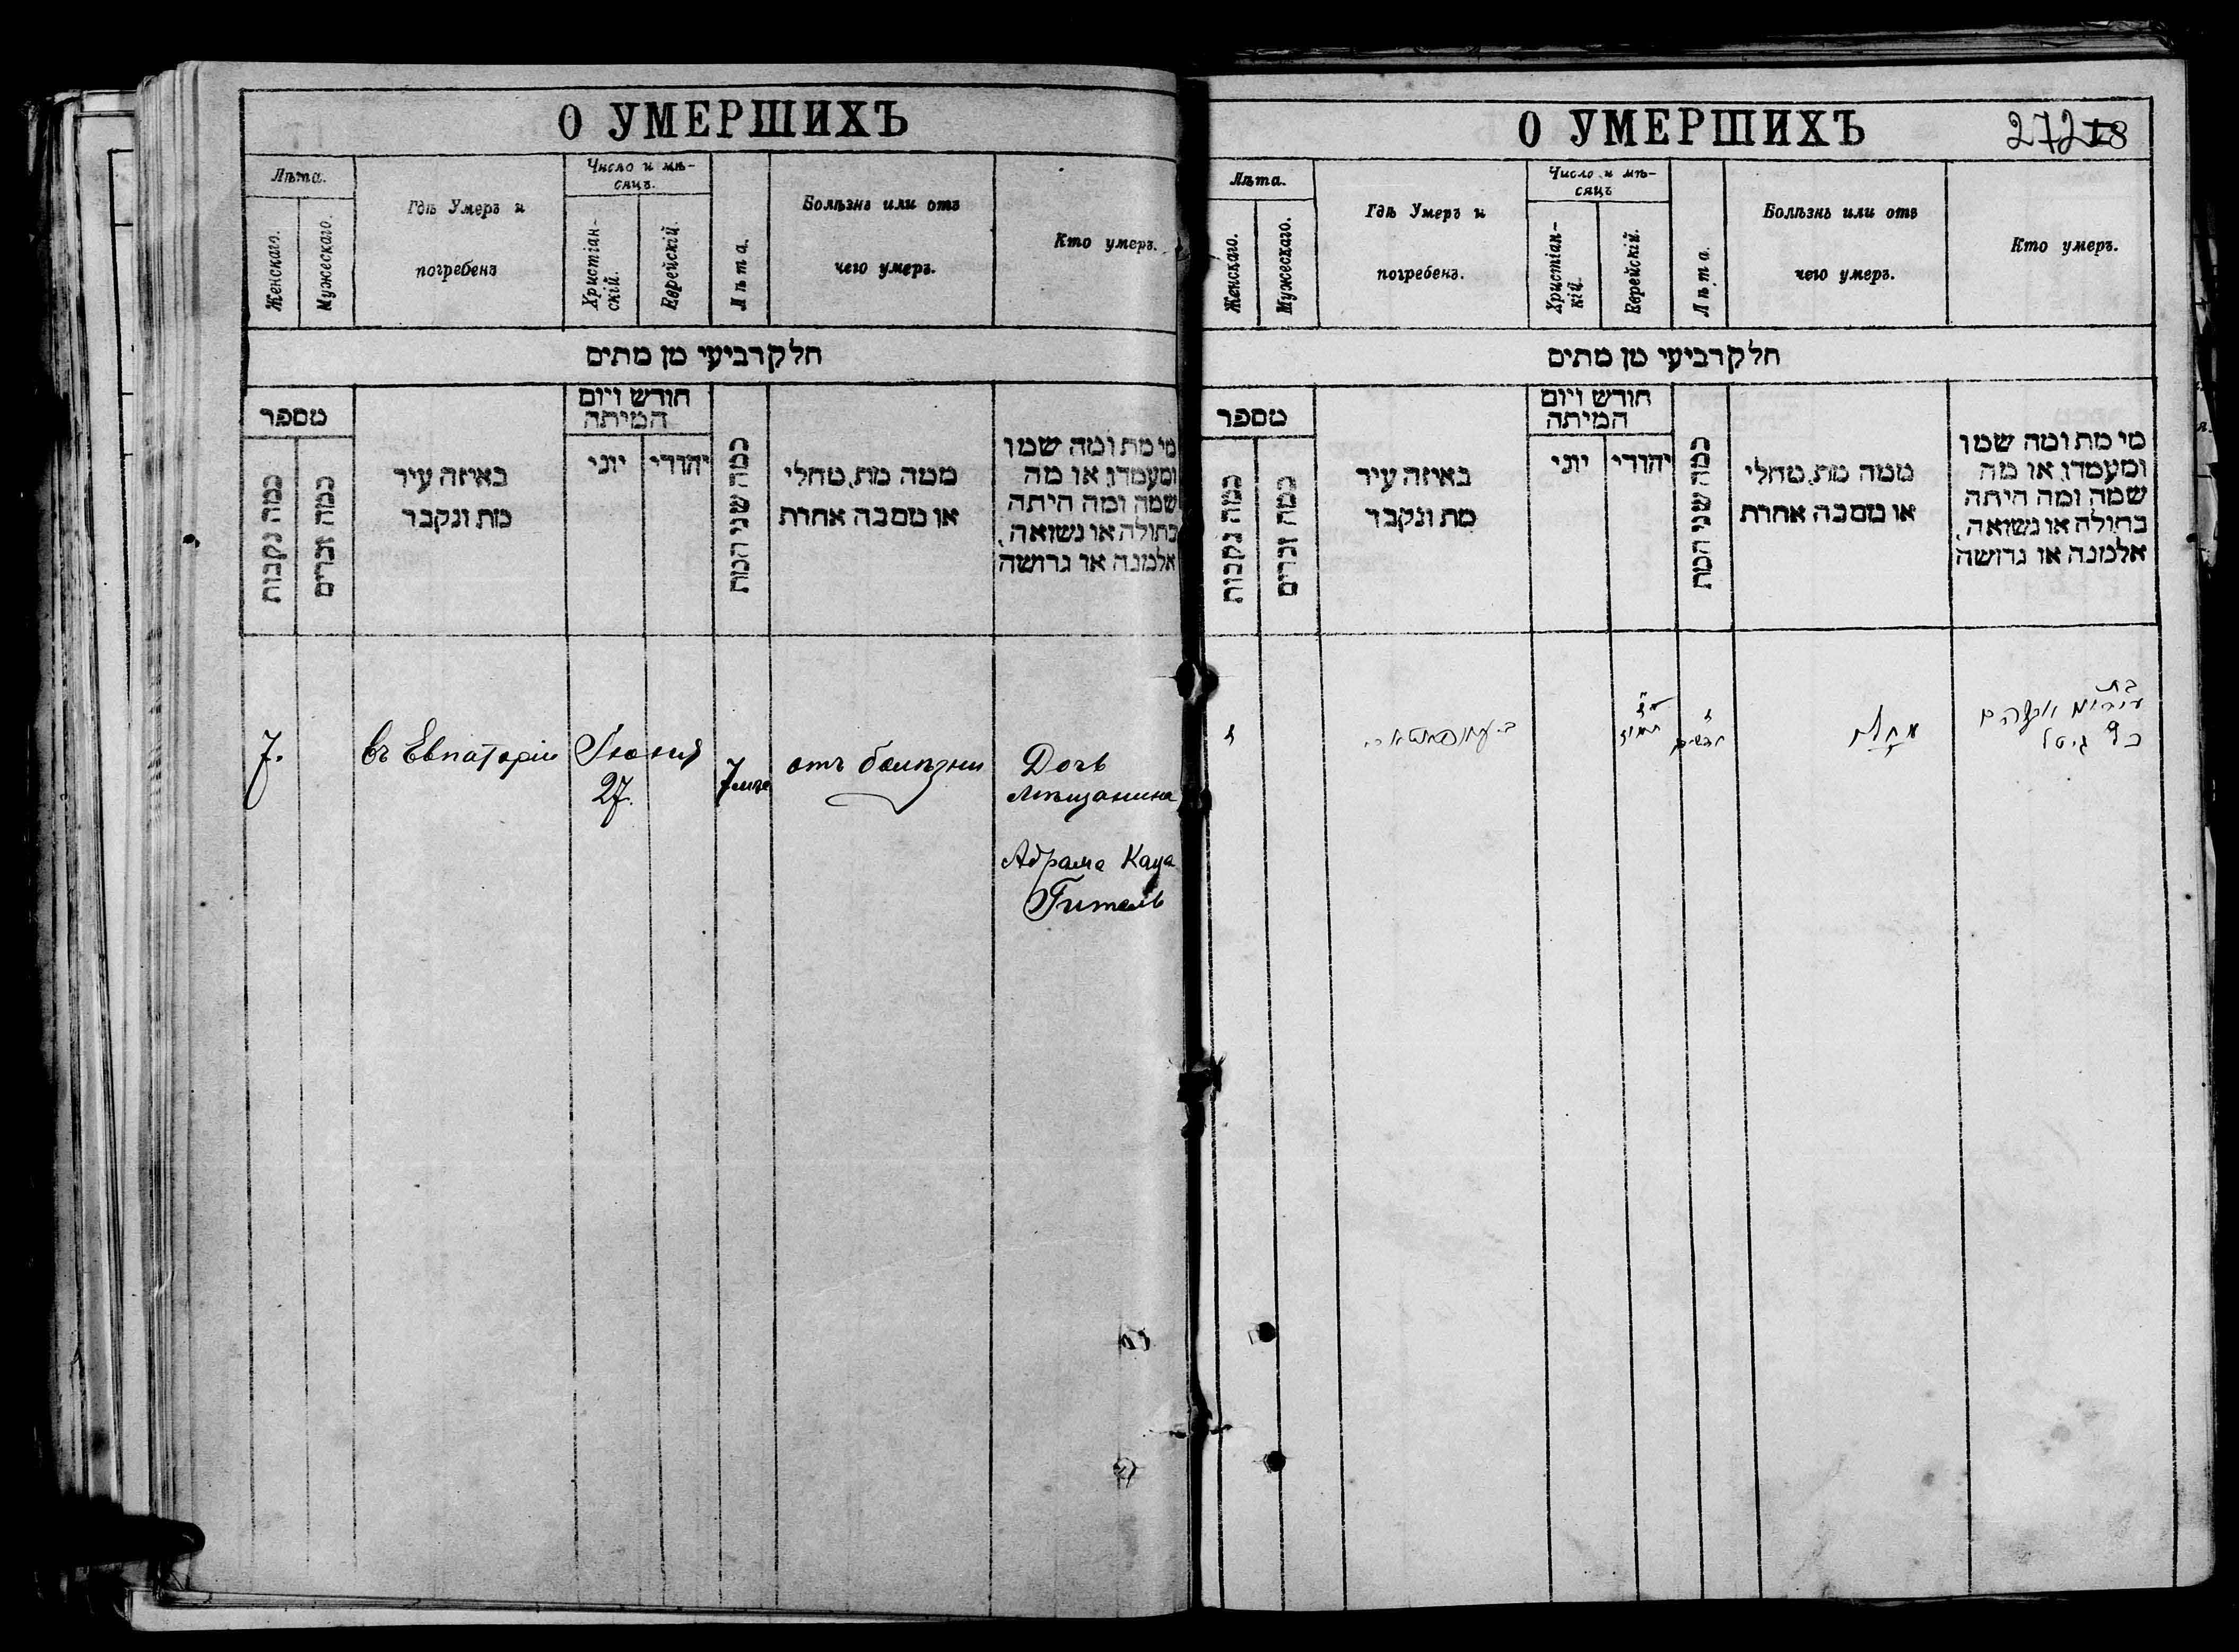 О УМЕРШИХЪ
Лѣта.
Женскаго.
Мужескаго.
Гдѣ Умеръ и
погребенъ
Число и мѣ-
сяцъ.
Христіан-
скій.
Еврейскій.
Лѣта.
Болѣзнь или отъ
чего умеръ.
Кто умеръ.
חלק רביעי מן מתים
מספר
כמה נקבות
כמה זכרים
באיזה עיר
מת ונקבר
חודש ויום
המיתה
יוני
יהודי
כמה שני המת
ממה מת, מחלי
או מסבה אחרת
מי מת ומה שמו
ומעמדו, או מה
שמה ומה היתה
בתולה או נשואה,
אלמנה או גרושה
7.
въ Евпаторіи
Іюня
27.
7 лѣт
отъ болѣзни
Дочь
мѣщанина
Абрама Каца
Гитель
О УМЕРШИХЪ
27218
Лѣта.
Женскаго.
Мужескаго.
Гдѣ Умеръ и
погребенъ.
Число и мѣ-
сяцъ
Христіан-
кій.
Еврейскій.
Лѣта.
Болѣзнь или отъ
чего умеръ.
Кто умеръ.
חלק רביעי מן מתים
מספר
כמה נקבות
כמה זכרים
באיזה עיר
מת ונקבר
חודש ויום
המיתה
יוני
יהודי
כמה שני המת
ממה מת, מחלי
או מסבה אחרת
מי מת ומה שמו
ומעמדו, או מה
שמה ומה היתה
בתולה או נשואה,
אלמנה או גרושה
ז
תמוז
בת
אברהם
כ"ץ גיטל